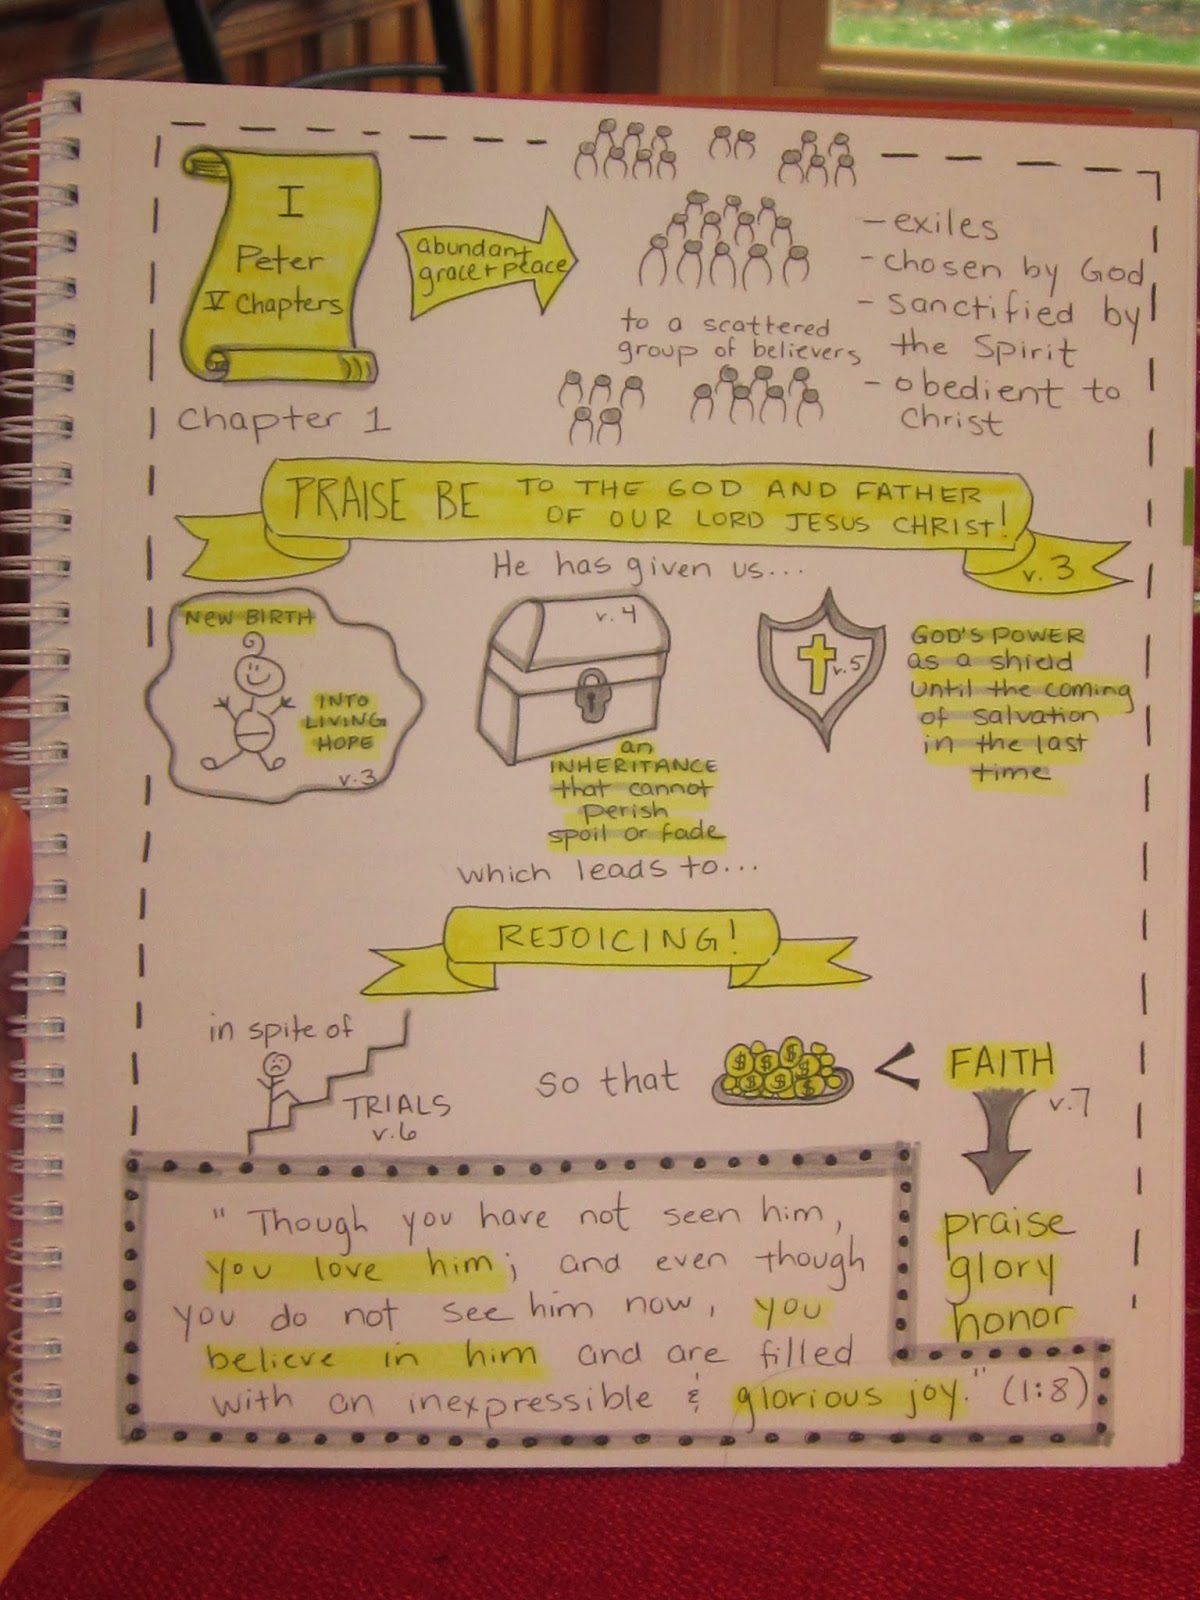 I
Peter
V Chapters
Chapter 1
abundant
grace + peace
to a scattered
group of believers
- exiles
- chosen by God
- sanctified by
the Spirit
- obedient to
Christ
PRAISE BE TO THE GOD AND FATHER
OF OUR LORD JESUS CHRIST!
v.3
He has given us...
NEW BIRTH
INTO
LIVING
HOPE
v.3
v.4
an
INHERITANCE
that cannot
perish
spoil or fade
v.5
GOD'S POWER
as a shield
until the coming
of salvation
in the last
time
which leads to...
REJOICING!
in spite of
TRIALS
v.6
so that
$ $ $ $ $ $
< FAITH
v.7
praise
glory
honor
"Though you have not seen him,
you love him; and even though
you do not see him now, you
believe in him and are filled
with an inexpressible & glorious joy." (1:8)